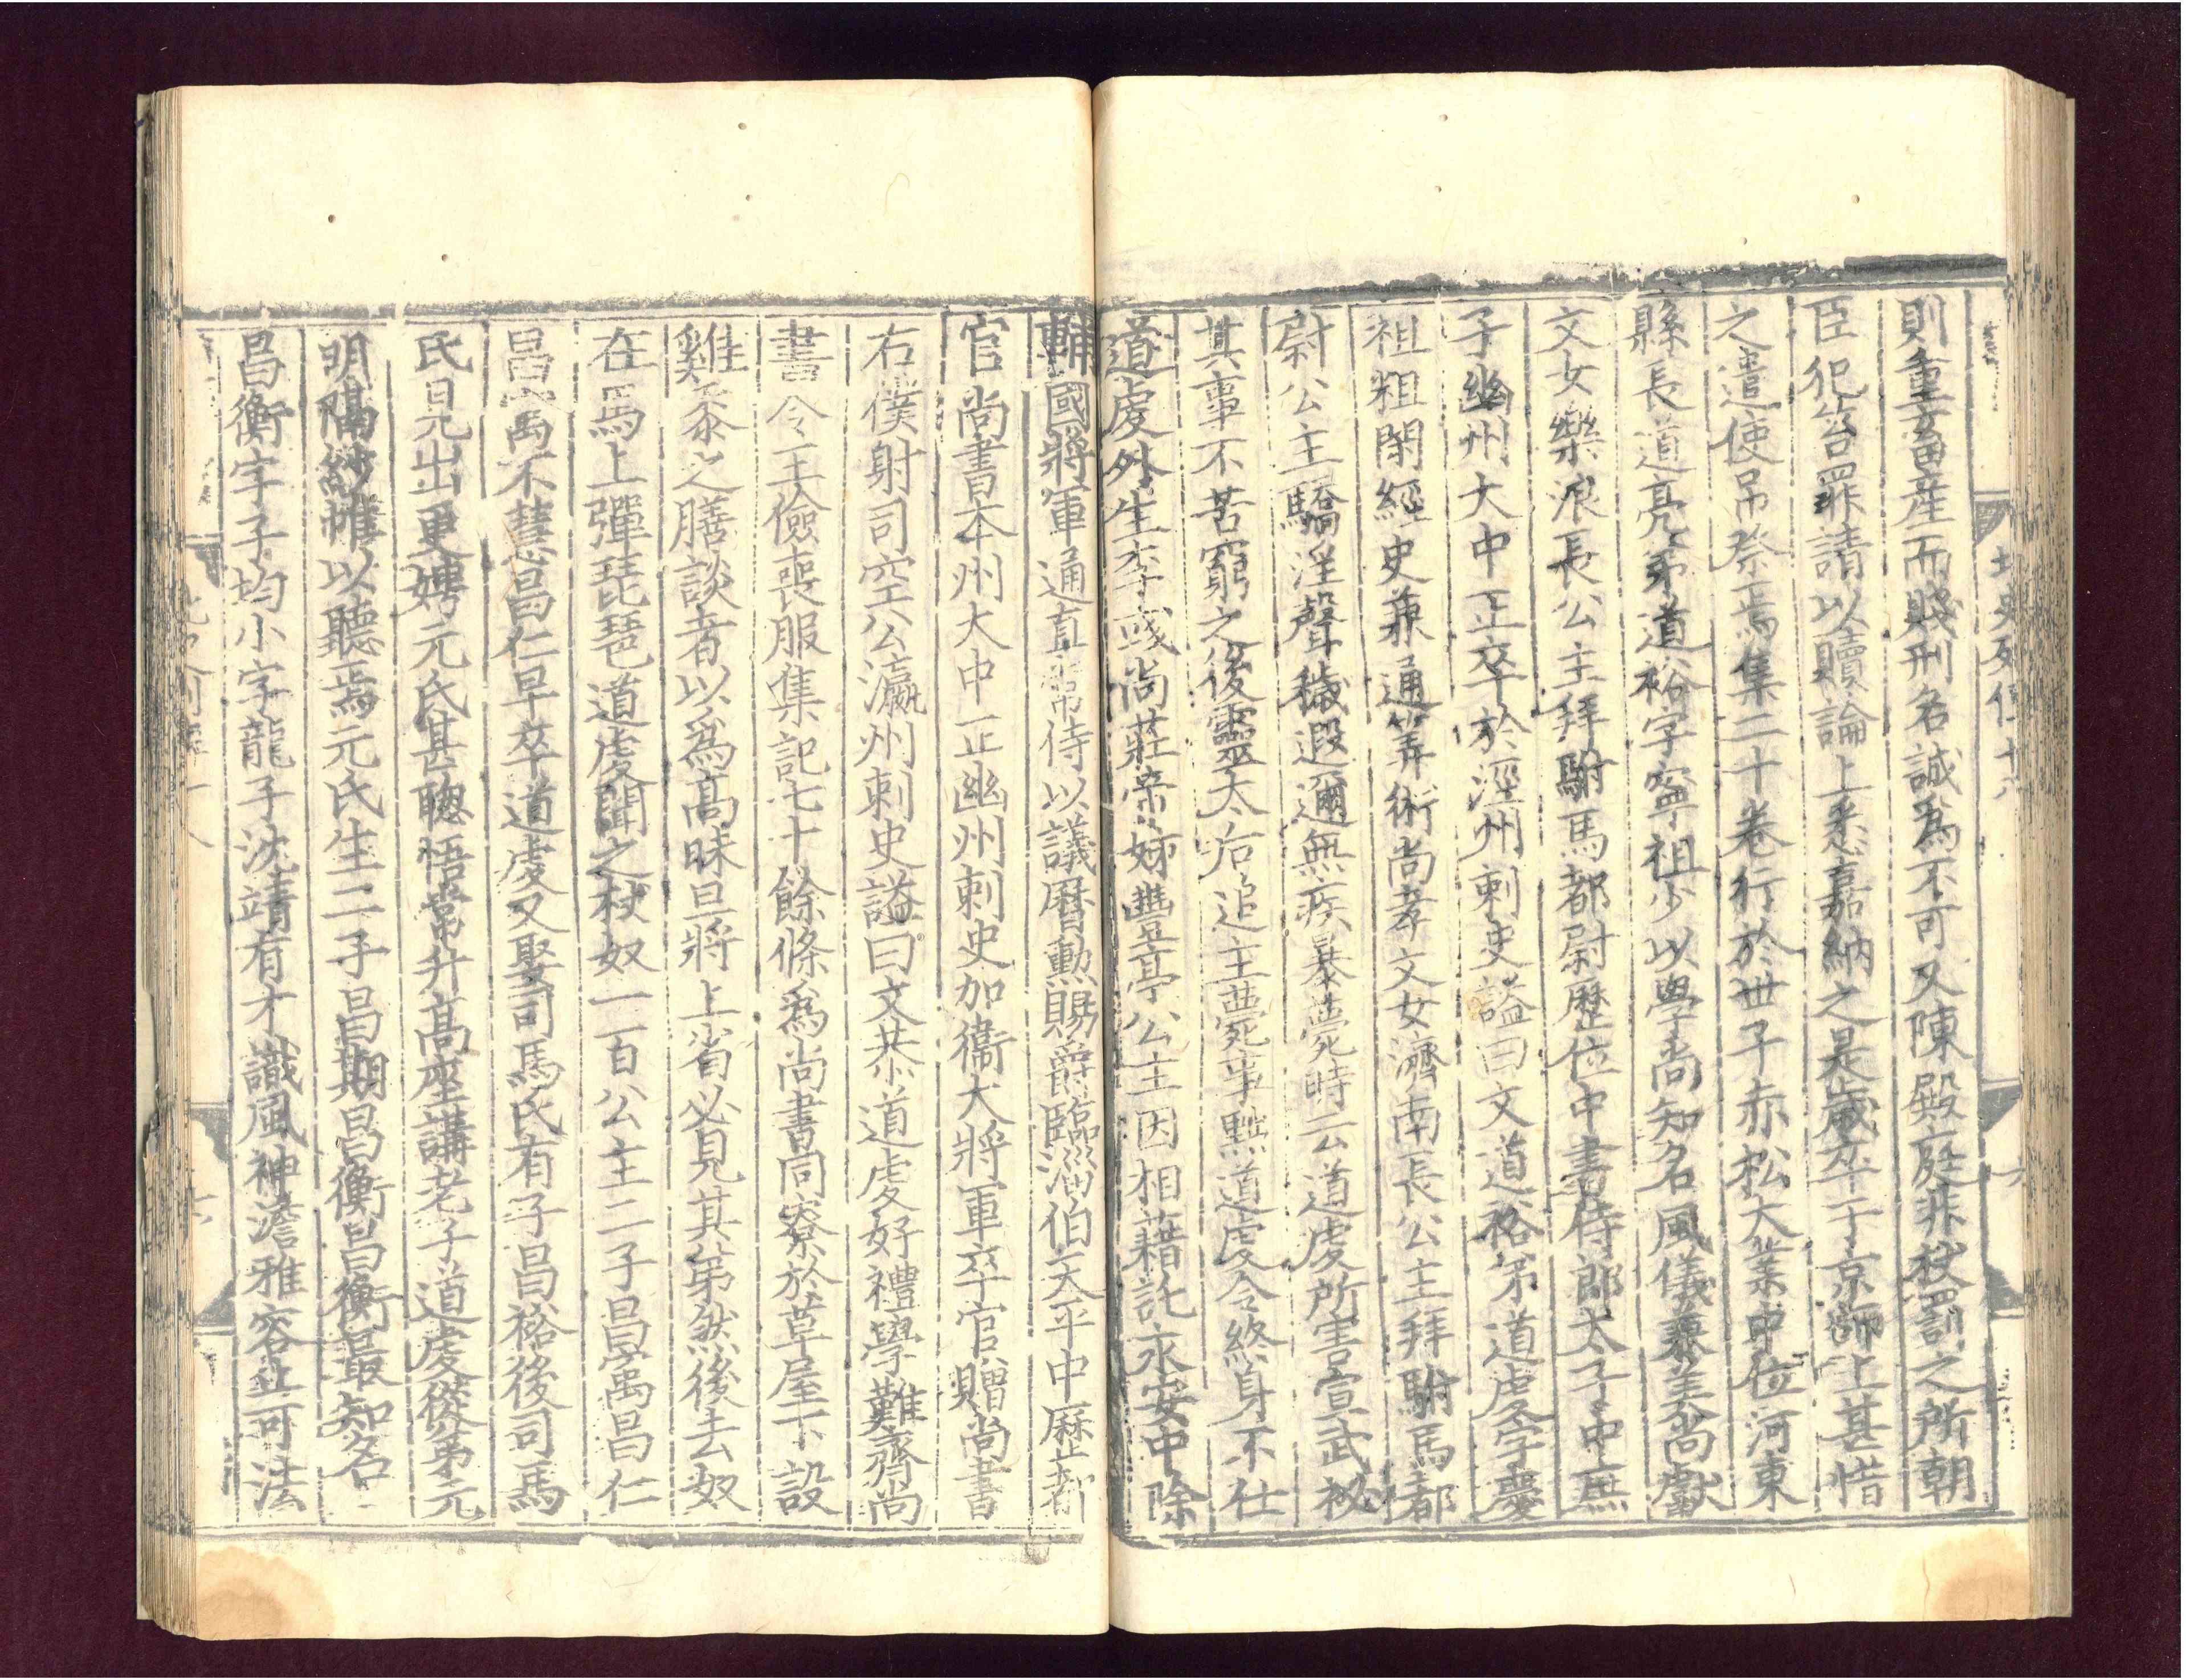 北史列傳十八
六
則重畜産而賤刑名誠爲不可又陳殿庭非杖罰之所朝
臣犯笞罪請以贖論上悉嘉納之是歳卒于京師上甚惜
之遣使吊祭焉集二十卷行於世子赤松大業中位河東
縣長道亮弟道裕字寧祖少以學尚知名風儀兼美尚獻
文女樂浪長公主拜駙馬都尉歷位中書侍郎太子中庶
子幽州大中正卒於涇州刺史謚曰文道裕弟道虔字慶
祖粗閑經史兼通筭術尚孝文女濟南長公主拜駙馬都
尉公主驕淫聲穢遐邇無疾暴薨時云道虔所害宣武祕
其事不苦窮之後靈太后追主薨事黜道虔令終身不仕
道虔外生李彧尚莊帝姊豊亭公主因相藉託永安中除
輔國將軍通直常侍以議曆勳賜爵臨淄伯天平中歷都
官尚書本州大中正幽州刺史加衞大將軍卒官贈尚書
右僕射司空公瀛州刺史謚曰文恭道虔好禮學難齊尚
書令王儉喪服集記七十餘條爲尚書同寮於草屋下設
雞黍之膳談者以爲高昧旦將上省必見其弟然後去奴
在馬上彈琵琶道虔聞之杖奴一百公主二子昌㝢昌仁
昌㝢不慧昌仁早卒道虔又娶司馬氏有子昌裕後司馬
氏見出更娉元氏甚聰悟常升高座講老子道虔從弟元
明隔紗帷以聽焉元氏生二子昌期昌衡昌衡最知名
昌衡字子均小字龍子沈靖有才識風神澹雅容止可法